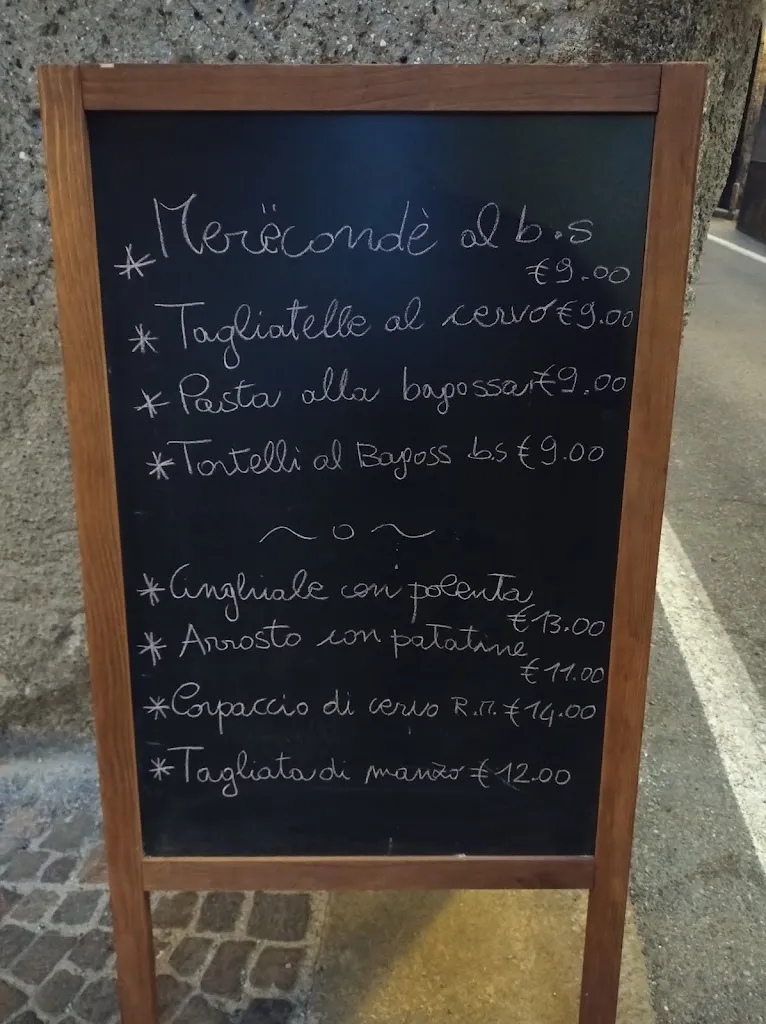 * Merëcondè al b.s
€9.00
* Tagliatelle al cervo €9.00
* Pasta alla bagossa €9.00
* Tortelli al Bagoss b.s €9.00
~o~
* Cinghiale con polenta
€13.00
* Arrosto con patatine
€11.00
* Carpaccio di cervo R.M. €14.00
* Tagliata di manzo €12.00